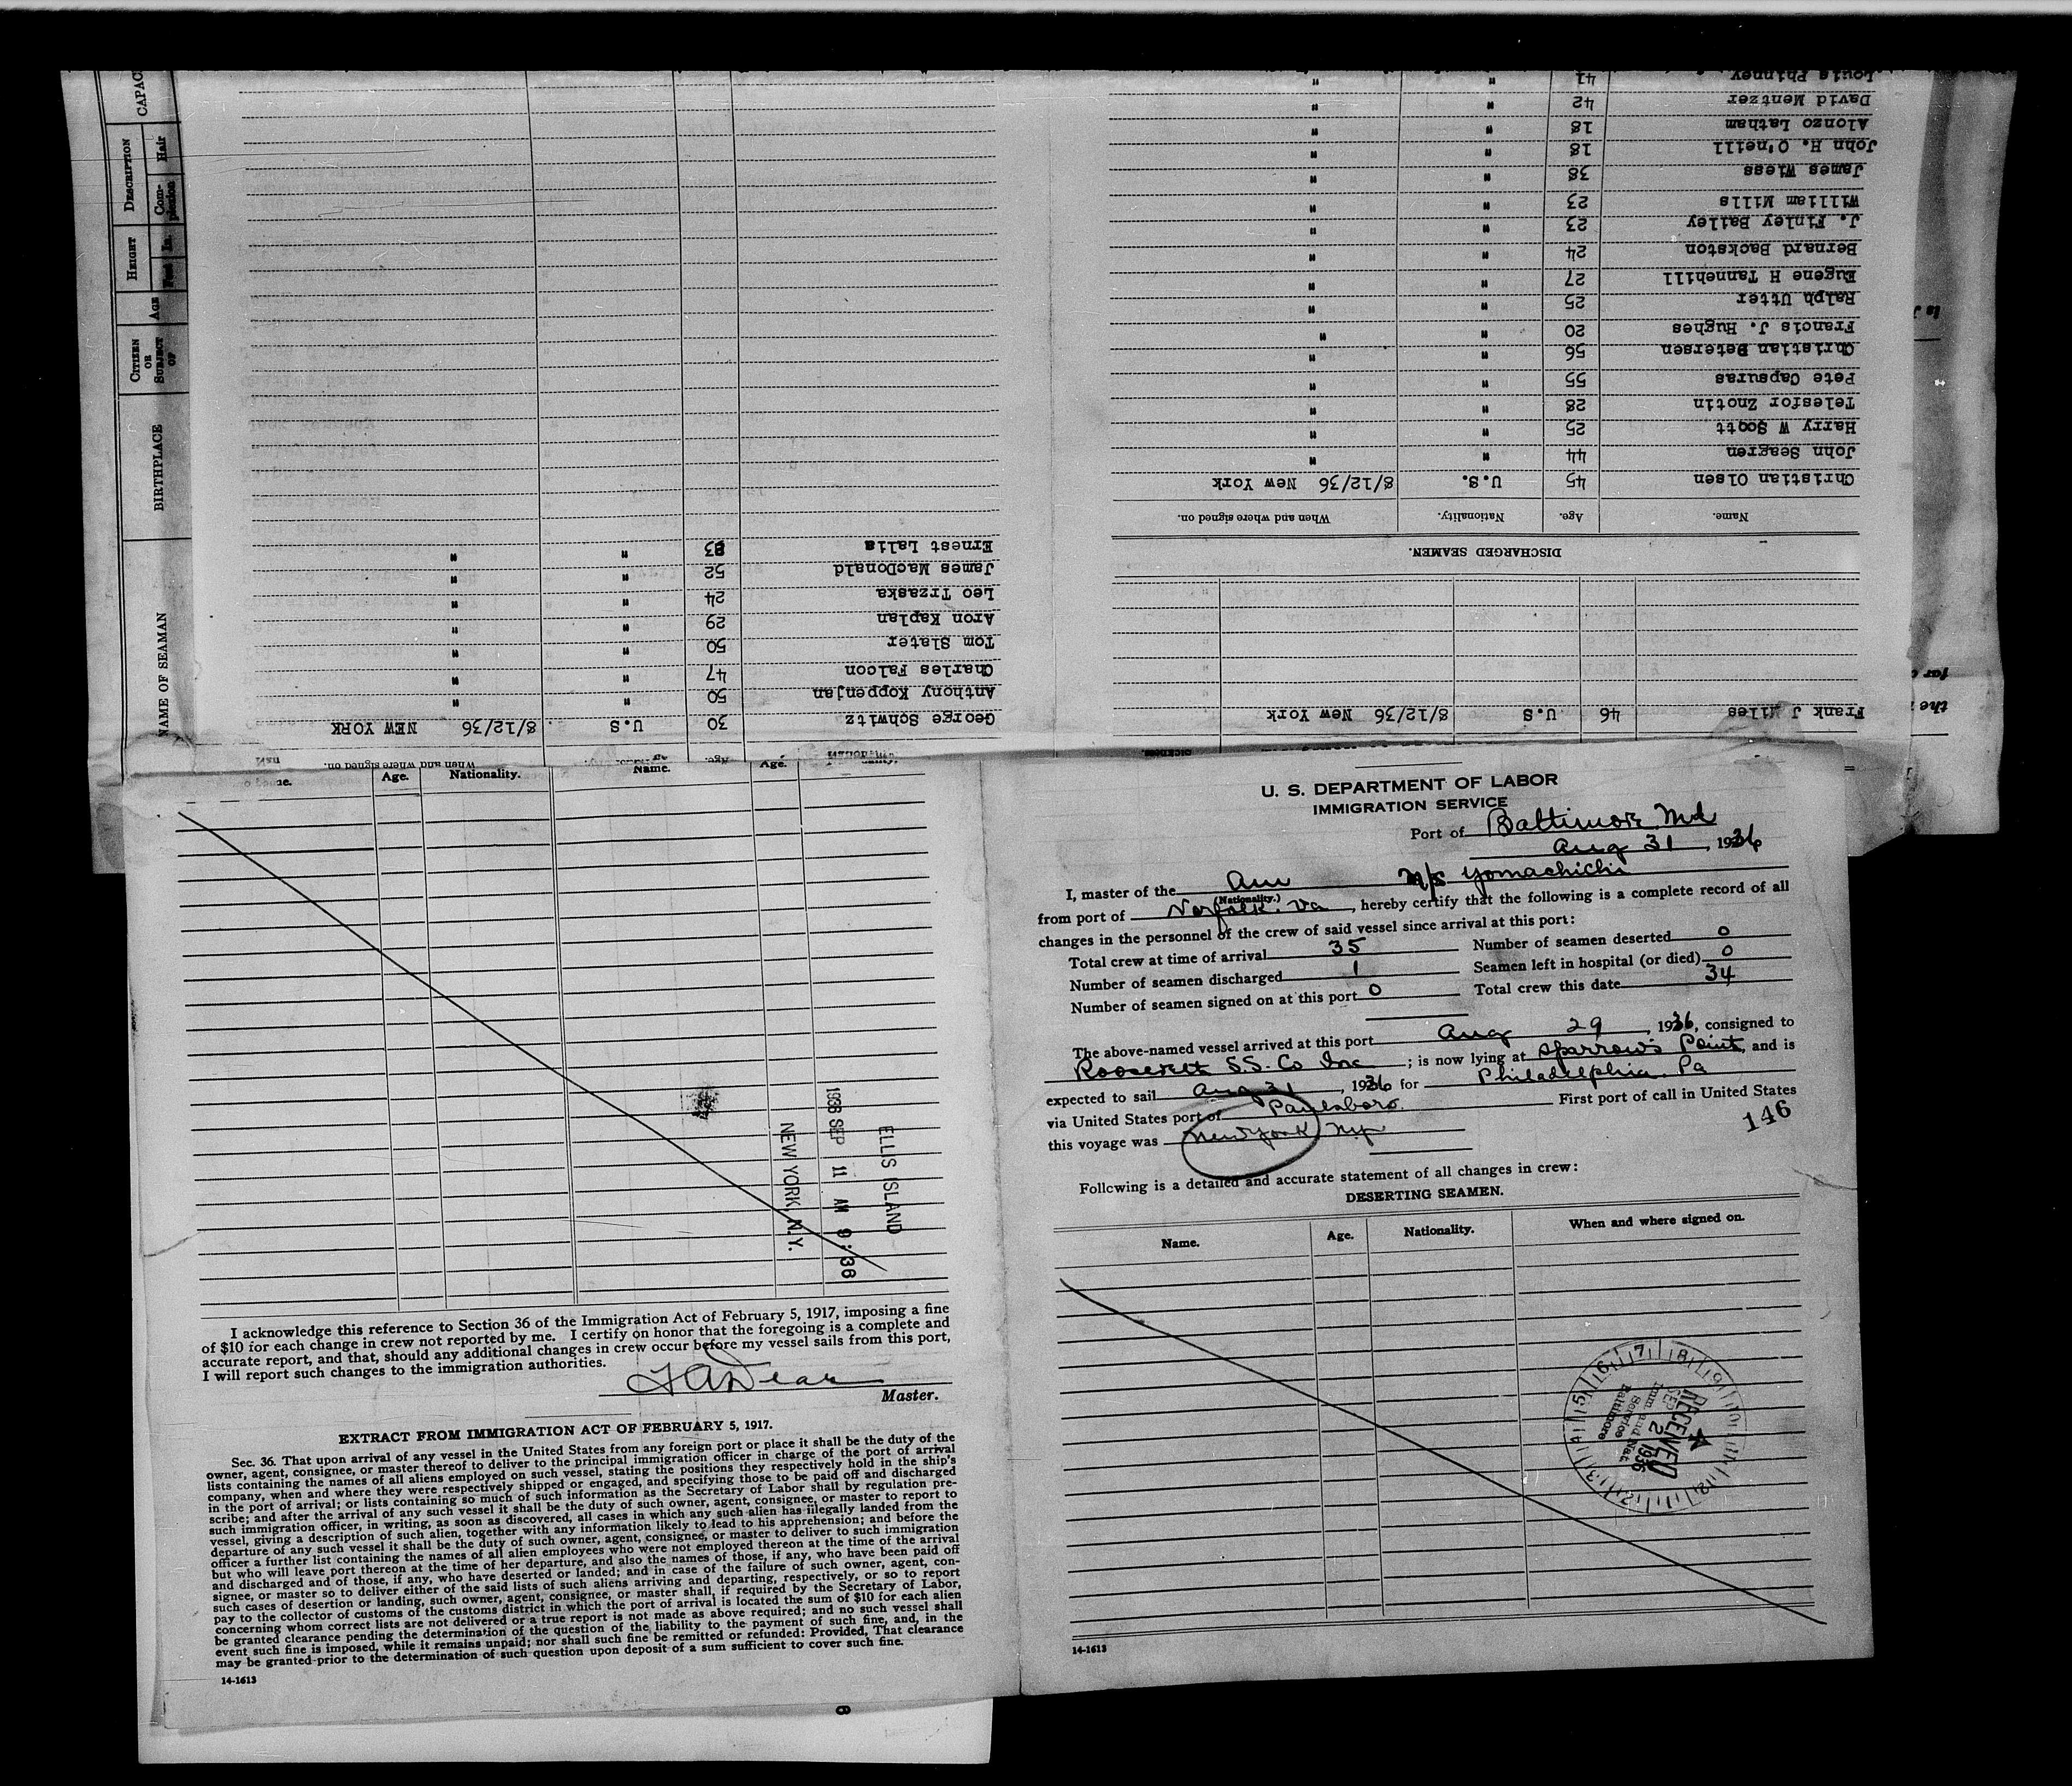 NAME OF SEAMAN
BIRTHPLACE
CITIZEN
OR
SUBJECT
OF
AGE
HEIGHT
Feet In.
DESCRIPTION
Com-
plexion
Hair
George Schwitz 30 U.S 8/12/36 NEW YORK
Anthony Koppenjan 50 " "
Charles Falcon 47 " "
Tom Slater 50 " "
Aron Kaplan 29 " "
Leo Trzaska 24 " "
James MacDonald 52 " "
Ernest Lalia " "
Frank J Miles 46 U.S 8/12/36 New York
DISCHARGED SEAMEN.
Name. Age. Nationality. When and where signed on.
Christian Olsen 45 U.S. 8/12/36 New York
John Seagren 44 " "
Harry W Scott 25 " "
Telesfor Znotin 28 " "
Pete Capsuras 55 " "
Christian Petersen 56 " "
Francis J. Hughes 20 " "
Ralph Utter 25 " "
Eugene H Tannehill 27 " "
Bernard Backston 24 " "
J. Finley Bailey 23 " "
William Mills 23 " "
James Wiess 38 " "
John H. O'neill 18 " "
Alonzo Latham 18 " "
David Mentzer 42 " "
Louis Phinney 41 " "
Age. Nationality. Name. Age.
ELLIS ISLAND
1936 SEP 11 AM 9:36
NEW YORK, N.Y.
I acknowledge this reference to Section 36 of the Immigration Act of February 5, 1917, imposing a fine
of $10 for each change in crew not reported by me. I certify on honor that the foregoing is a complete and
accurate report, and that, should any additional changes in crew occur before my vessel sails from this port,
I will report such changes to the immigration authorities.
Master.
EXTRACT FROM IMMIGRATION ACT OF FEBRUARY 5, 1917.
Sec. 36. That upon arrival of any vessel in the United States from any foreign port or place it shall be the duty of the
owner, agent, consignee, or master thereof to deliver to the principal immigration officer in charge of the port of arrival
lists containing the names of all aliens employed on such vessel, stating the positions they respectively hold in the ship's
company, when and where they were respectively shipped or engaged, and specifying those to be paid off and discharged
in the port of arrival; or lists containing so much of such information as the Secretary of Labor shall by regulation pre-
scribe; and after the arrival of any such vessel it shall be the duty of such owner, agent, consignee, or master to report to
such immigration officer, in writing, as soon as discovered, all cases in which any such alien has illegally landed from the
vessel, giving a description of such alien, together with any information likely to lead to his apprehension; and before the
departure of any such vessel it shall be the duty of such owner, agent, consignee, or master to deliver to such immigration
officer a further list containing the names of all alien employees who were not employed thereon at the time of the arrival
but who will leave port thereon at the time of her departure, and also the names of those, if any, who have been paid off
and discharged and of those, if any, who have deserted or landed; and in case of the failure of such owner, agent, con-
signee, or master so to deliver either of the said lists of such aliens arriving and departing, respectively, or so to report
such cases of desertion or landing, such owner, agent, consignee, or master shall, if required by the Secretary of Labor,
pay to the collector of customs of the customs district in which the port of arrival is located the sum of $10 for each alien
concerning whom correct lists are not delivered or a true report is not made as above required; and no such vessel shall
be granted clearance pending the determination of the question of the liability to the payment of such fine, and, in the
event such fine is imposed, while it remains unpaid; nor shall such fine be remitted or refunded: Provided, That clearance
may be granted prior to the determination of such question upon deposit of a sum sufficient to cover such fine.
14-1613
U. S. DEPARTMENT OF LABOR
IMMIGRATION SERVICE
Port of Baltimore Md
Aug 31, 1936
I, master of the Am M/S Yomachichi
(Nationality.)
from port of Norfolk. Va, hereby certify that the following is a complete record of all
changes in the personnel of the crew of said vessel since arrival at this port:
Total crew at time of arrival 35 Number of seamen deserted 0
Number of seamen discharged 1 Seamen left in hospital (or died) 0
Number of seamen signed on at this port 0 Total crew this date 34
The above-named vessel arrived at this port Aug 29, 1936, consigned to
Roosevelt S.S. Co Inc; is now lying at Sparrows Point, and is
expected to sail Aug 31, 1936 for Philadelphia. Pa
via United States port of Paulsboro. First port of call in United States
this voyage was New York NY
146
Following is a detailed and accurate statement of all changes in crew:
DESERTING SEAMEN.
Name. Age. Nationality. When and where signed on.
RECEIVED
SEP 2 1936
Imm. and Nat.
Service
Baltimore
14-1613